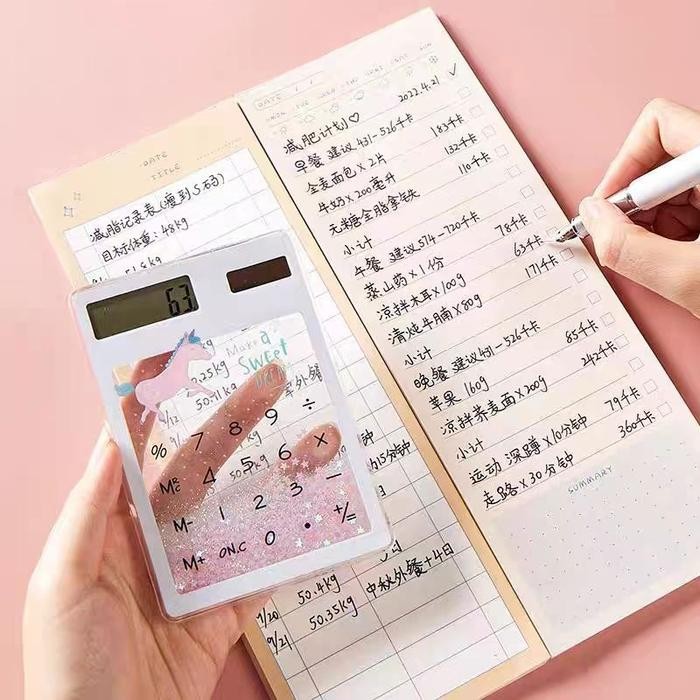 DATE
TITLE
减脂记录表(瘦到S码)
目标体重:48kg
63
Make a
SWEET
50.11 kg
室外餐
% 7 8 9 ÷
4 5 6 ×
M- 1 2 3 −
M+ ON.C 0 . +/=
50.4kg 中秋外餐+4日
9/21 50.35kg
DATE / /
2022.4.21 ✓
减肥计划♡
早餐 建议431-526千卡
全麦面包×2片 183千卡
牛奶×200毫升 132千卡
无米糖全脂拿铁 110千卡
小计
午餐 建议574-720千卡
蒸山药×1份 78千卡
凉拌木耳×100g 63千卡
清炖牛腩×80g 171千卡
小计
晚餐 建议431-526千卡
苹果 160g 85千卡
凉拌荞麦面×200g 242千卡
小计
运动 深蹲×10分钟 79千卡
走路×30分钟 360千卡
SUMMARY